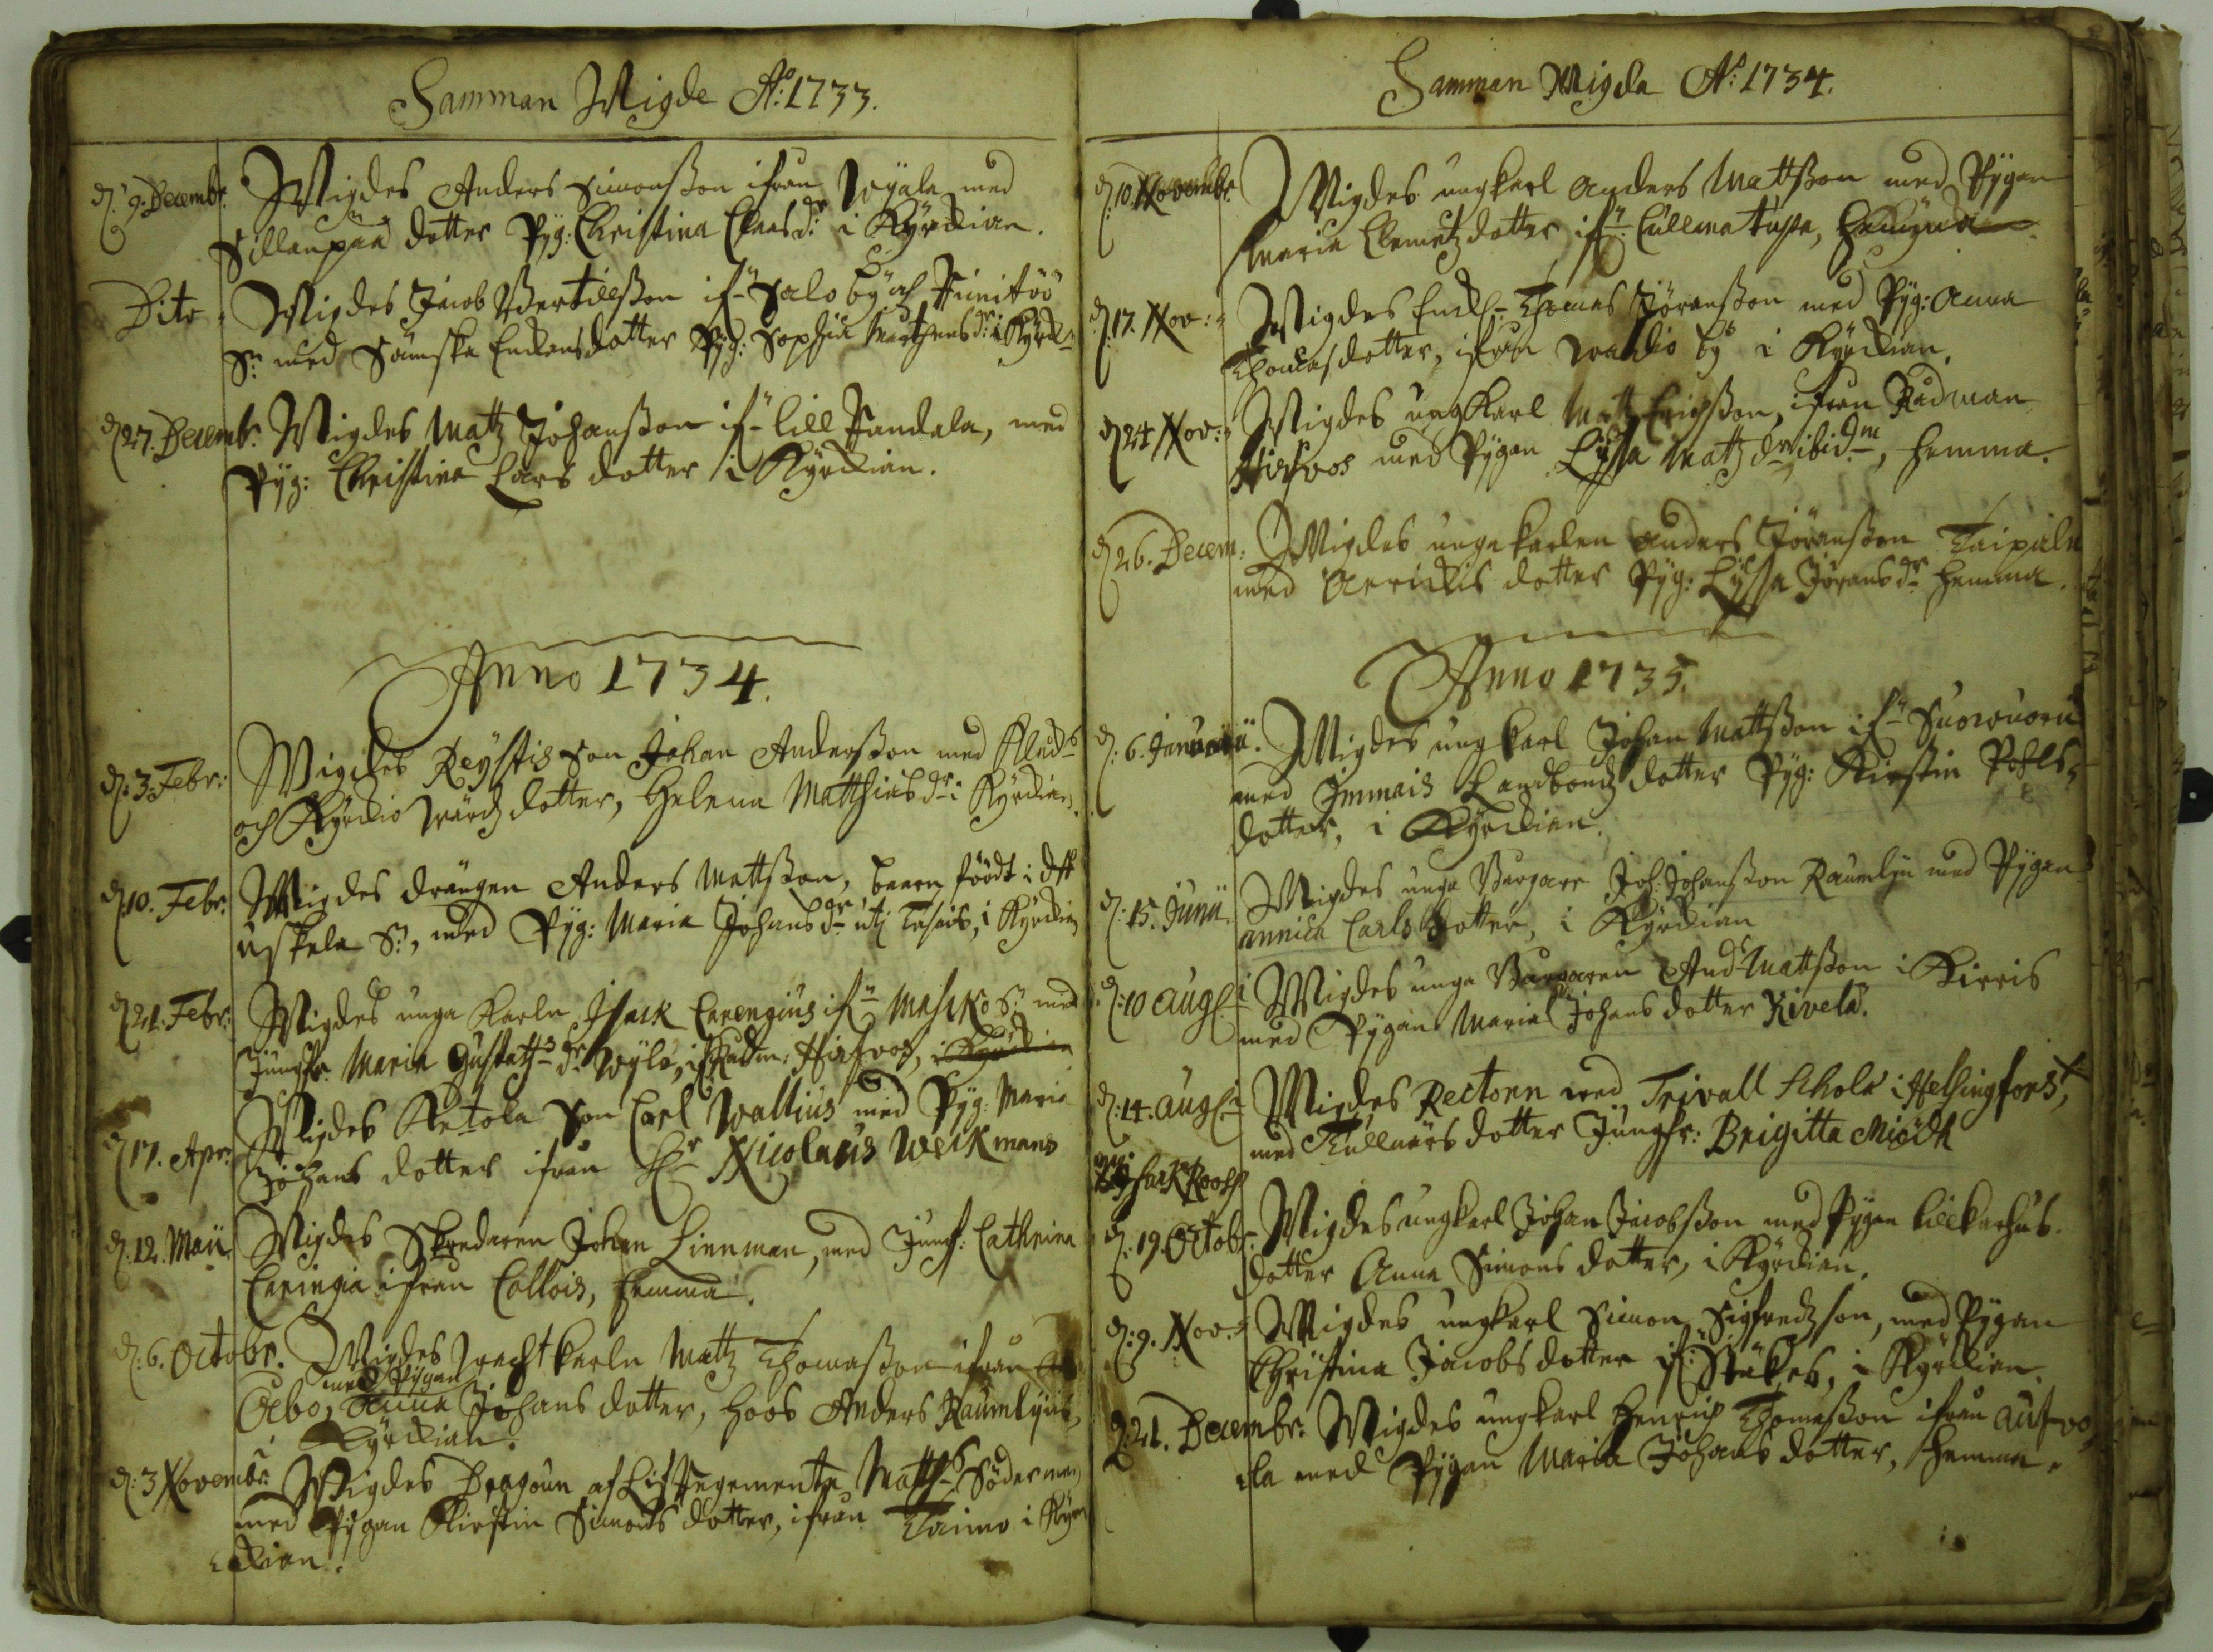 Samman Wigde Ao: 1733.
d. 9. Decembr. Wigdes Anders Simonsson ifrån Wyala med
Sillanpää dotter Pyg: Christina Claesdr i Kyrckian.
Dito Wigdes Jacob Bertillsson ifn Salo by af Kimitoo
Sn med dotter Pyg: Sophia Mårthensdr i Kyrck
d. 27. Decembr. Wigdes Matz Johansson ifn lill Pandela, med
Pyg: Christina Lars dotter i Kyrckian.
Anno 1734.
d. 3. Febr: Wigdes Reystis Son Johan Andersson med
och Kyrckio wärdz dotter, Helena Matthiaedr i Kyrckian.
d. 10. Febr: Wigdes drängen Anders Mattsson, barn född i
Uskela Sn, med Pyg: Maria Johansdr uti i Kyrckian
d. 21. Febr: Wigdes unga Karln Isack Carengius ifn Masko Sn med
Jungfr: Maria Gustafsdr Wylo, i Radm: Hirfvos, i Kyrckian
d. 17. Apr: Wigdes Ketola Son Carl Wallius med Pyg: Maria
Johans dotter ifrån Hr Nicolaus Weckmans
d. 12. Maii. Wigdes Skredaren Johan Linnman, med Jungf: Cathrina
Caringia ifrån Collois, hemma.
d. 6. Octobr. Wigdes wachtkarln Matz Thomasson ifrån
med Pygan
Åbo, Anna Johans dotter, hoos Anders Raumlyns,
i Kyrckian.
d. 3 Novembr: Wigdes Dragoun af Lifregemente Matths Söderman
med Pygan Kirstin Simons dotter, ifrån Taimo i Kyr
ckian.
Samman Wigda Ao: 1734.
d. 10. Novembr. Wigdes ungkarl Anders Mattsson med Pygan
Maria Clemetz dotter, ifn Cullma tupa,
d. 17. Nov: Wigdes Enckl. Thomas Jöransson med Pyg: Anna
Thomasdotter, ifrån by i Kyrckian.
d. 24 Nov: Wigdes ungkarl Matz Erichsson, ifrån Radman
Hirfvos med Pygan Lijsa Matzdr ibidm, hemma.
d. 26. Decem: Wigdes ungakarlen Anders Jöransson Taipale
med dotter Pyg: Lyssa Jöransdr hemma.
Anno 1735.
d. 6. Januarii. Wigdes ungkarl Johan Mattsson ifn
med Immais Landbondz dotter Pyg: Kirstin Påhls
dotter, i Kyrckian.
d. 15. Junii. Wigdes unga Borgare Joh: Johansson Raumlyn med Pygan
Annica Carls dotter, i Kyrckian
d. 10 Aug: Wigdes unga Borgaren And. Mattsson i Kirris
med Pygan Maria Johans dotter Rivela.
d. 14. Aug: Wigdes Rectorn wed Trivall Schole i Helsingfors,
med dotter Jungfr: Brigitta
Roos
d. 19. Octobr. Wigdes ungkarl Johan Jacobsson med Pygan Lillkarhus
dotter Anna Simons dotter, i Kyrckian.
d. 9. Nov. Wigdes ungkarl Simon Sigfredzson, med Pygan
Christina Jacobs dotter if: Ståckes, i Kyrckian.
d. 21. Decembr: Wigdes ungkarl Henrich Thomasson ifrån Aufvo
ila med Pygan Maria Johans dotter, hemma.